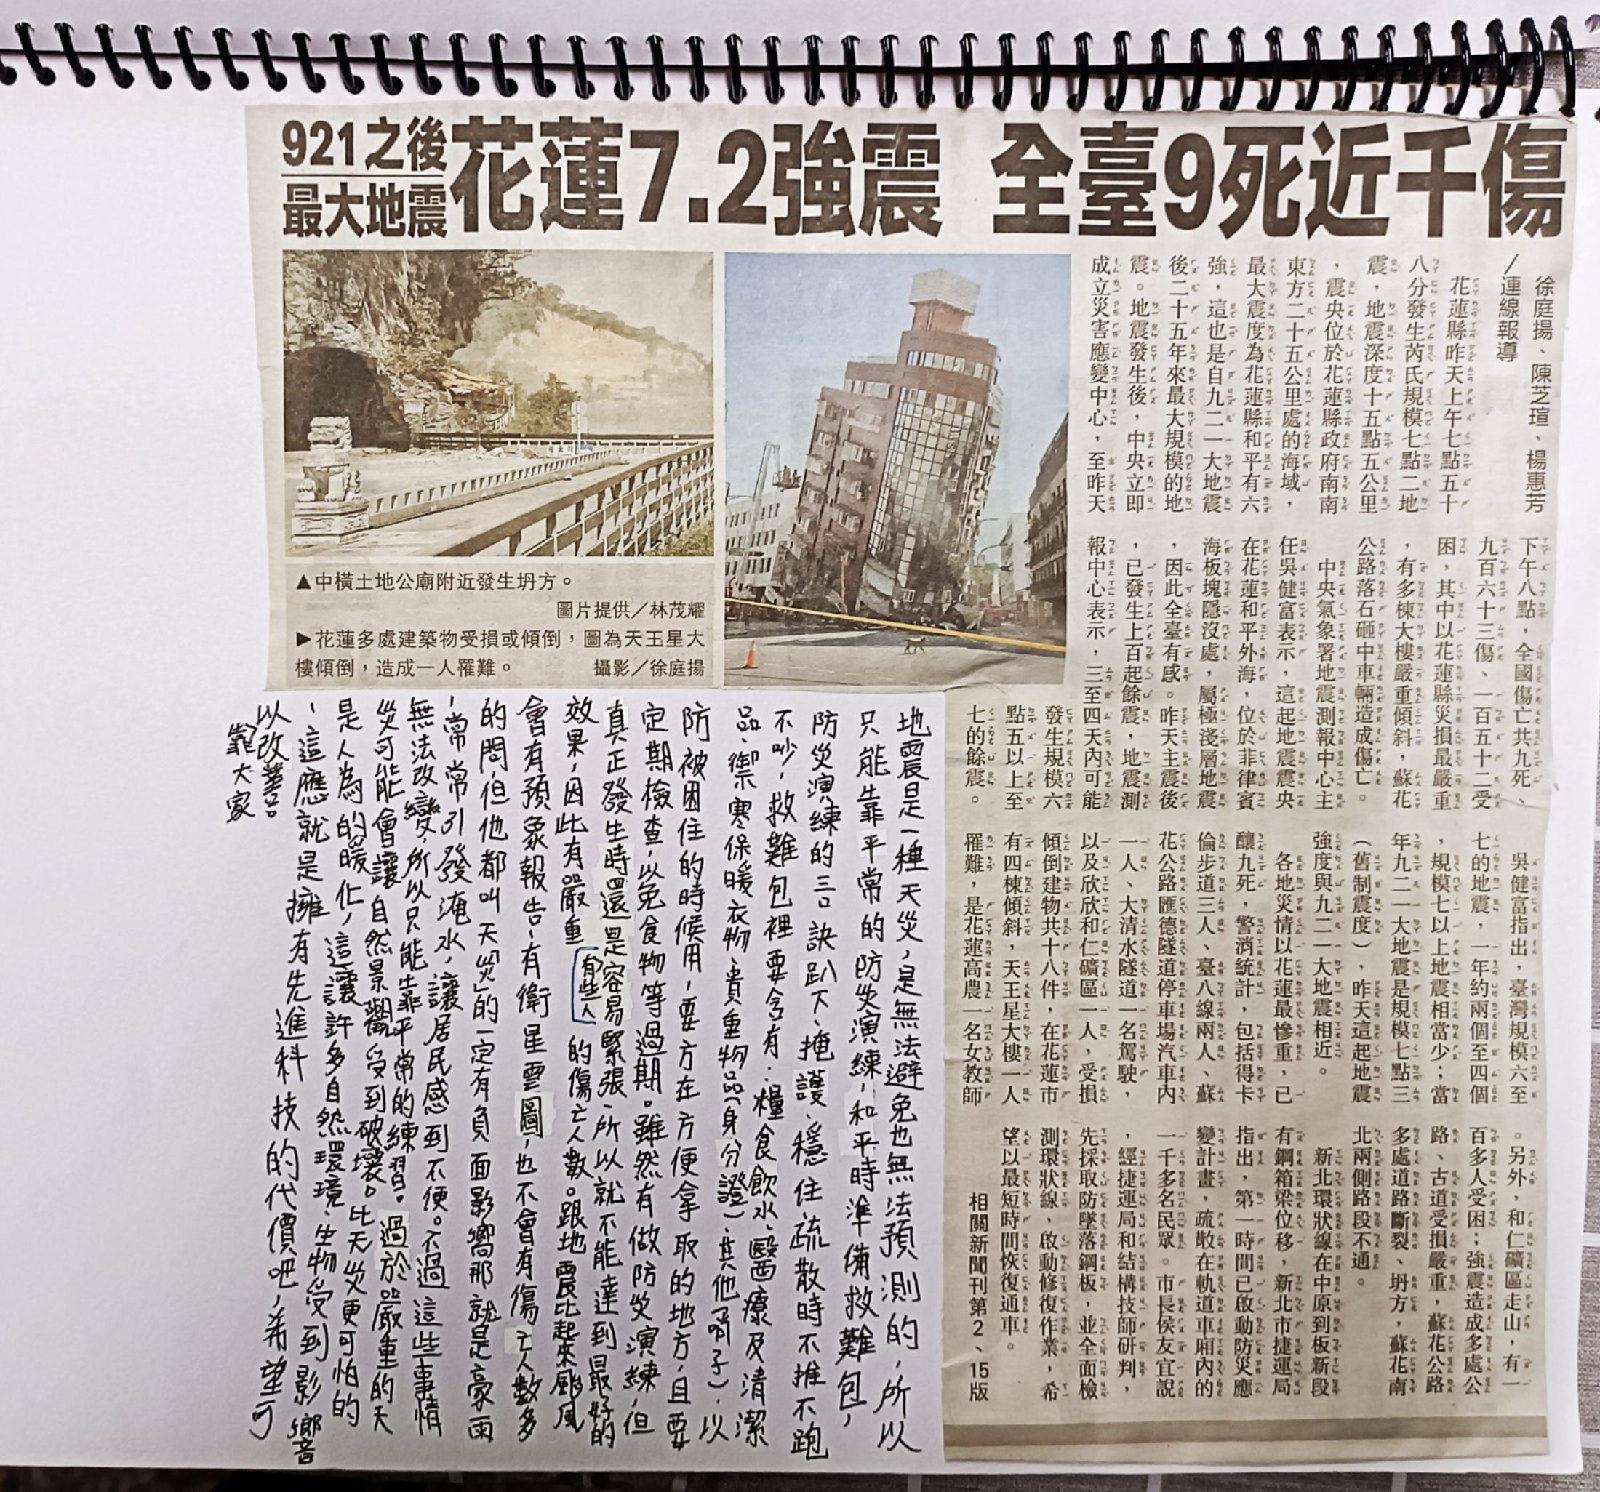 921之後
最大地震
花蓮7.2強震 全臺9死近千傷
徐庭揚、陳芝瑄、楊惠芳
／連線報導
花蓮縣昨天上午七點五十
八分發生芮氏規模七點二地
震，地震深度十五點五公里
，震央位於花蓮縣政府南南
東方二十五公里處的海域，
最大震度為花蓮縣和平有六
強，這也是自九二一大地震
後二十五年來最大規模的地
震。地震發生後，中央立即
成立災害應變中心，至昨天
下午八點，全國傷亡共九死、
九百六十三傷、一百五十二受
困，其中以花蓮縣災損最嚴重
，有多棟大樓嚴重傾斜，蘇花
公路落石砸中車輛造成傷亡。
中央氣象署地震測報中心主
任吳健富表示，這起地震震央
在花蓮和平外海，位於菲律賓
海板塊隱沒處，屬極淺層地震
，因此全臺有感。昨天主震後
，已發生上百起餘震，地震測
報中心表示，三至四天內可能
發生規模六
點五以上至
七的餘震。
吳健富指出，臺灣規模六至
七的地震，一年約兩個至四個
，規模七以上地震相當少；當
年九二一大地震是規模七點三
（舊制震度），昨天這起地震
強度與九二一大地震相近。
各地災情以花蓮最慘重，已
釀九死，警消統計，包括得卡
倫步道三人、臺八線兩人、蘇
花公路匯德隧道停車場汽車內
一人、大清水隧道一名駕駛，
以及欣欣和仁礦區一人，受損
傾倒建物共十八件，在花蓮市
有四棟傾斜，天王星大樓一人
罹難，是花蓮高農一名女教師
。另外，和仁礦區走山，有一
百多人受困；強震造成多處公
路、古道受損嚴重，蘇花公路
多處道路斷裂、坍方，蘇花南
北兩側路段不通。
新北環狀線在中原到板新段
有鋼箱梁位移，新北市捷運局
指出，第一時間已啟動防災應
變計畫，疏散在軌道車廂內的
一千多名民眾。市長侯友宜說
，經捷運局和結構技師研判，
先採取防墜落鋼板，並全面檢
測環狀線，啟動修復作業，希
望以最短時間恢復通車。
相關新聞刊第2、15版
▲中橫土地公廟附近發生坍方。
圖片提供／林茂耀
▶花蓮多處建築物受損或傾倒，圖為天王星大
樓傾倒，造成一人罹難。 攝影／徐庭揚
地震是一種天災，是無法避免也無法預測的，所以
只能靠平常的防災演練，和平時準備救難包，
防災演練的三口訣趴下、掩護、穩住疏散時不推不跑
不吵，救難包裡要含有：糧食飲水、醫療及清潔
品、禦寒保暖衣物、貴重物品(身分證)、其他(哨子)，以
防被困住的時候用，要方在方便拿取的地方，且要
定期檢查，以免食物等過期。雖然有做防災演練，但
真正發生時還是容易緊張，所以就不能達到最好的
效果，因此有嚴重有些人的傷亡人數。跟地震比起來颱風
會有預象報告、有衛星雲圖，也不會有傷亡人數多
的問，但他都叫天「災」的一定有負面影嚮那就是豪雨
，常常引發淹水，讓居民感到不便。不過這些事情
無法改變，所以只能靠平常的練習。過於嚴重的天
災可能會讓自然景觀受到破壞。比天災更可怕的
是人為的暖化，這讓許多自然環境、生物受到影響
，這應就是擁有先進科技的代價吧，希望可
以改善。
靠大家